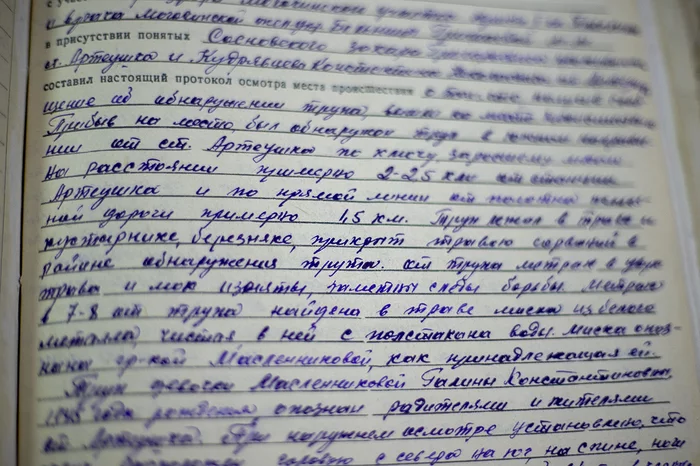 с уча
и врача Могочинской
в присутствии понятых Сосновского Захара
ст. Артеушка и Кудрявцева Константина
составил настоящий протокол осмотра места происшествия о
щение об обнаружении трупа, выехал на место
Прибыв на место, был обнаружен труп в южном направле
нии от ст. Артеушка по ключу, заросшему мхом
на расстоянии примерно 2-2,5 км от станции
Артеушка и по прямой линии от полотна желез
ной дороги примерно 1,5 км. Труп лежал в траве и
кустарнике, березняке, прикрыт травою сорванной в
районе обнаружения трупа. от трупа метрах в двух
трава и мох изрыты, заметны следы борьбы. Метрах
в 7-8 от трупа найдена в траве миска из белого
металла чистая в ней с полстакана воды. Миска опоз
нана гр-кой Масленниковой, как принадлежащая ей.
Труп девочки Масленниковой Галины Константиновны,
года рождения опознан родителями и жителями
ст. Артеушка. При наружном осмотре установлено, что
головою с севера на юг, на спине, ноги